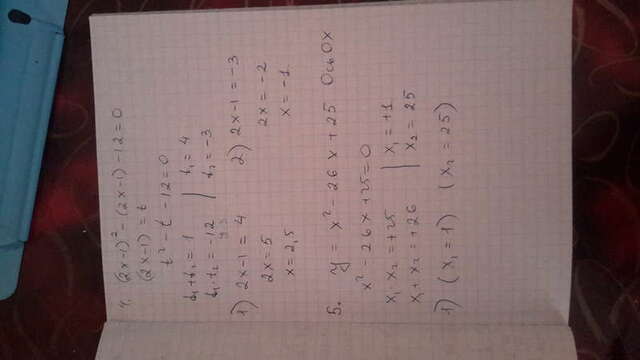 4. (2x-1)² - (2x-1) - 12 = 0
(2x-1) = t
t² - t - 12 = 0
t₁ + t₂ = 1 | t₁ = 4
t₁ · t₂ = -12 | t₂ = -3
1) 2x-1 = 4 2) 2x-1 = -3
2x = 5 2x = -2
x = 2,5 x = -1
5. y = x² - 26x + 25 Ось Ox
x² - 26x + 25 = 0
x₁ · x₂ = +25 | x₁ = +1
x₁ + x₂ = +26 | x₂ = 25
1) (x₁ = 1) (x₂ = 25)